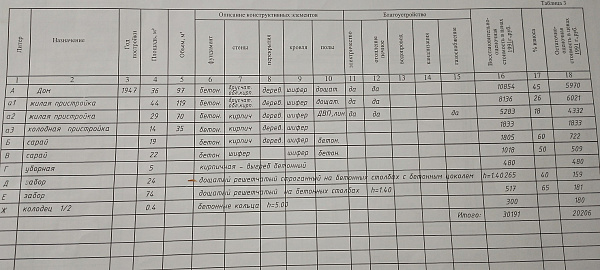 Таблица 3
Литер Назначение Год постройки Площадь, м² Объем, м³ Описание конструктивных элементов Благоустройства Восстановительно-оценочная стоимость в ценах 1991 г., руб. % износа Остаточно-оценочная стоимость в ценах 1991 г., руб.
фундамент стены перекрытия кровля полы электричество отопление печное водопровод канализация газоснабжение
1 2 3 4 5 6 7 8 9 10 11 12 13 14 15 16 17 18
А Дом 1947 36 97 бетон. брусчат. обл.кирп. дерев. шифер дощат. да да 10854 45 5970
а1 жилая пристройка 44 119 бетон. брусчат. обл.кирп. дерев. шифер дощат. да да 8136 26 6021
а2 жилая пристройка 29 70 бетон. кирпич дерев. шифер ДВП,лин. да да да 5283 18 4332
а3 холодная пристройка 14 35 бетон. кирпич дерев. шифер 1833 1833
Б сарай 19 бетон. кирпич дерев. шифер бетон. 1805 60 722
В сарай 22 бетон. шифер шифер бетон. 1018 50 509
Г уборная 5 кирпичная - выгреб бетонный 480 480
Д забор 24 дощатый решетчатый строганный на бетонных столбах с бетонным цоколем h=1.40 265 40 159
Е забор 74 дощатый решетчатый на бетонных столбах h=1.40 517 65 181
Ж колодец 1/2 0.4 бетонные кольца h=5.00 300 180
Итого: 30191 20206